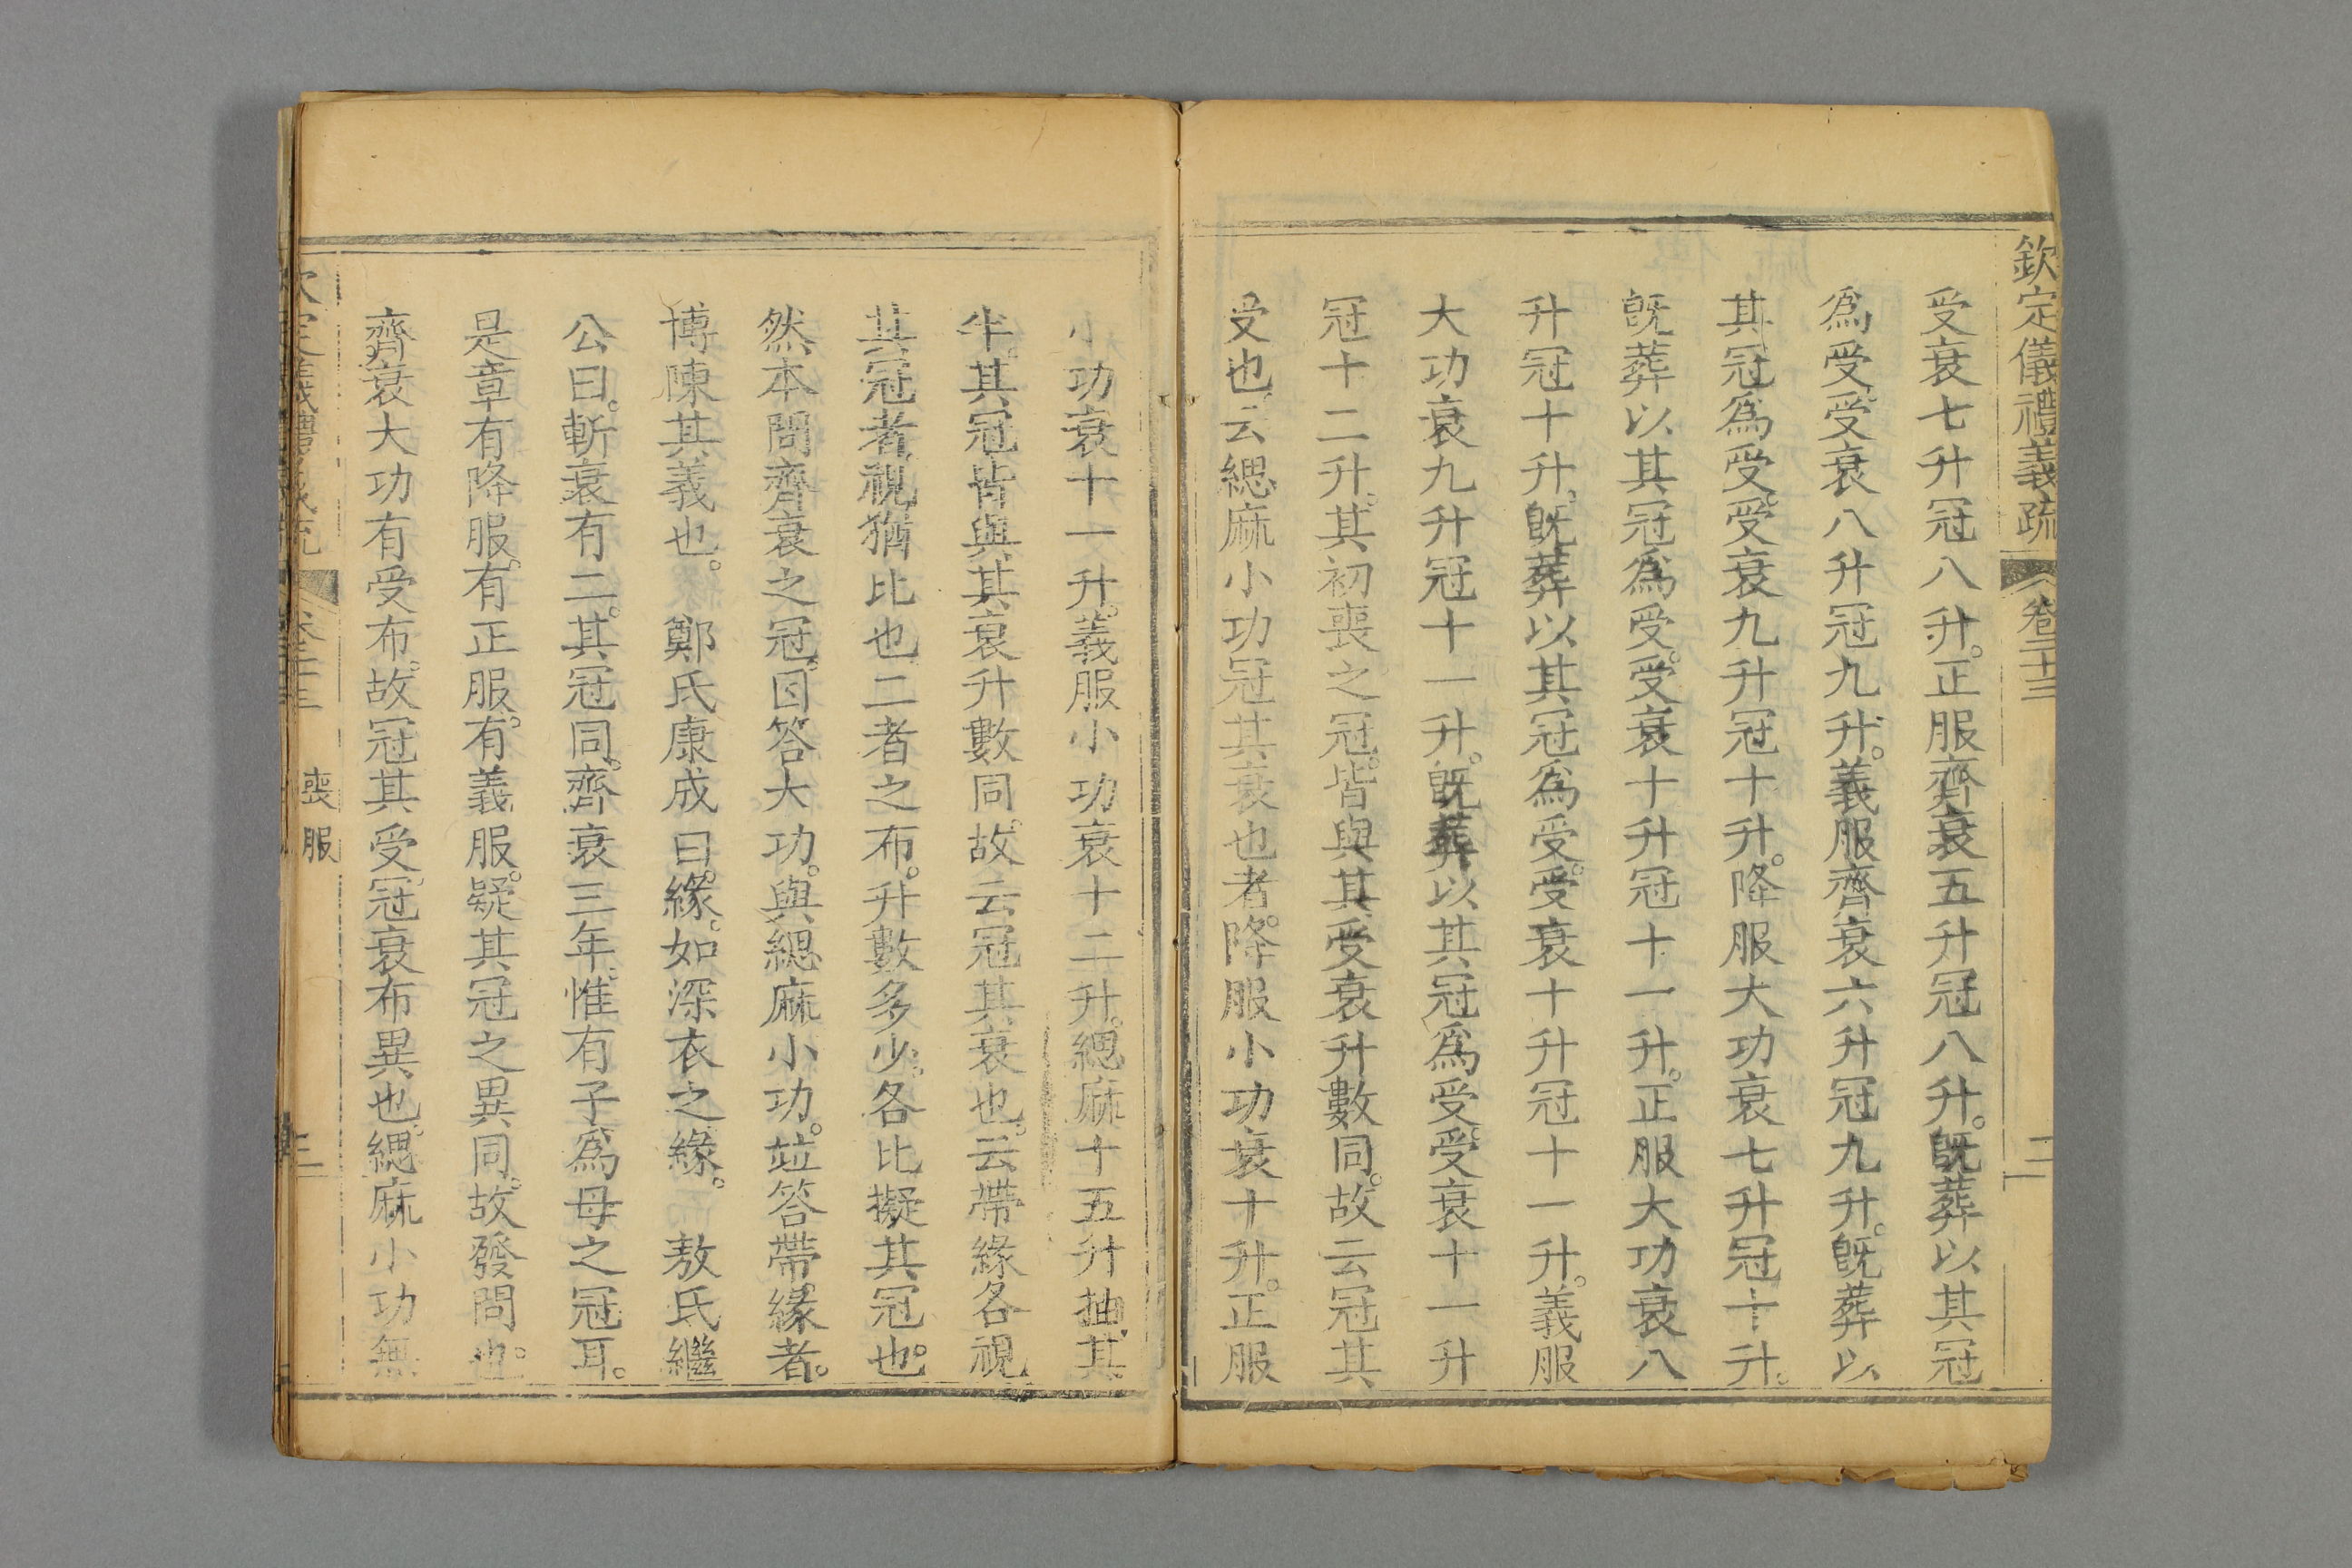 欽定儀禮義疏 卷二十三 二
受衰七升冠八升。正服齊衰五升冠八升。旣葬以其冠
爲受。受衰八升冠九升。義服齊衰六升冠九升。旣葬以
其冠爲受。受衰九升冠十升。降服大功衰七升冠十升。
旣葬以其冠爲受。受衰十升冠十一升。正服大功衰八
升冠十升。旣葬以其冠爲受。受衰十升冠十一升。義服
大功衰九升冠十一升。旣葬以其冠爲受。受衰十一升
冠十二升。其初喪之冠。皆與其受衰升數同。故云冠其
受也。云緦麻小功冠其衰也者。降服小功衰十升。正服
小功衰十一升。義服小功衰十二升。緦麻十五升抽其
半。其冠皆與其衰升數同。故云冠其衰也。云帶緣各視
其冠者。視猶比也二者之布。升數多少。各比擬其冠也。
然本問齊衰之冠。因答大功。與緦麻小功。竝答帶緣者。
博陳其義也。 鄭氏康成曰。緣。如深衣之緣。 敖氏繼
公曰。斬衰有二。其冠同。齊衰三年。惟有子爲母之冠耳。
是章有降服。有正服。有義服。疑其冠之異同。故發問也。
齊衰大功有受布。故冠其受。冠衰布異也。緦麻小功無
喪服 三